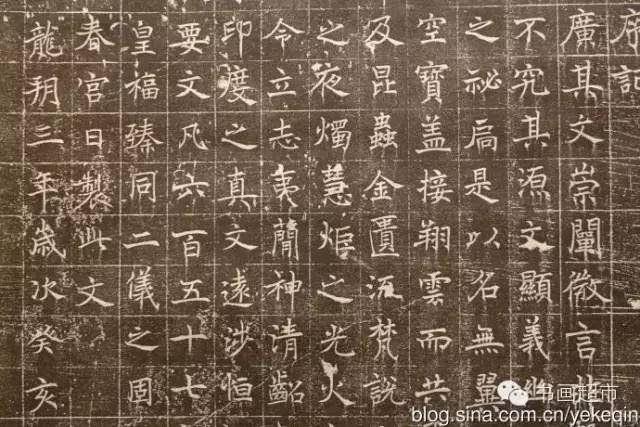 記
廣其文崇闡微言非
不究其源文顯義
之祕扃是以名無翼
空寶盖接翔雲而共
及昆蟲金匱流梵說
之夜燭慧炬之光火
令立志夷簡神清齠
印度之真文遠涉恒
要文凡六百五十七
皇福臻同二儀之固
春宮日製此文
龍朔三年歲次癸亥
书画超市
blog.sina.com.cn/yekeqin